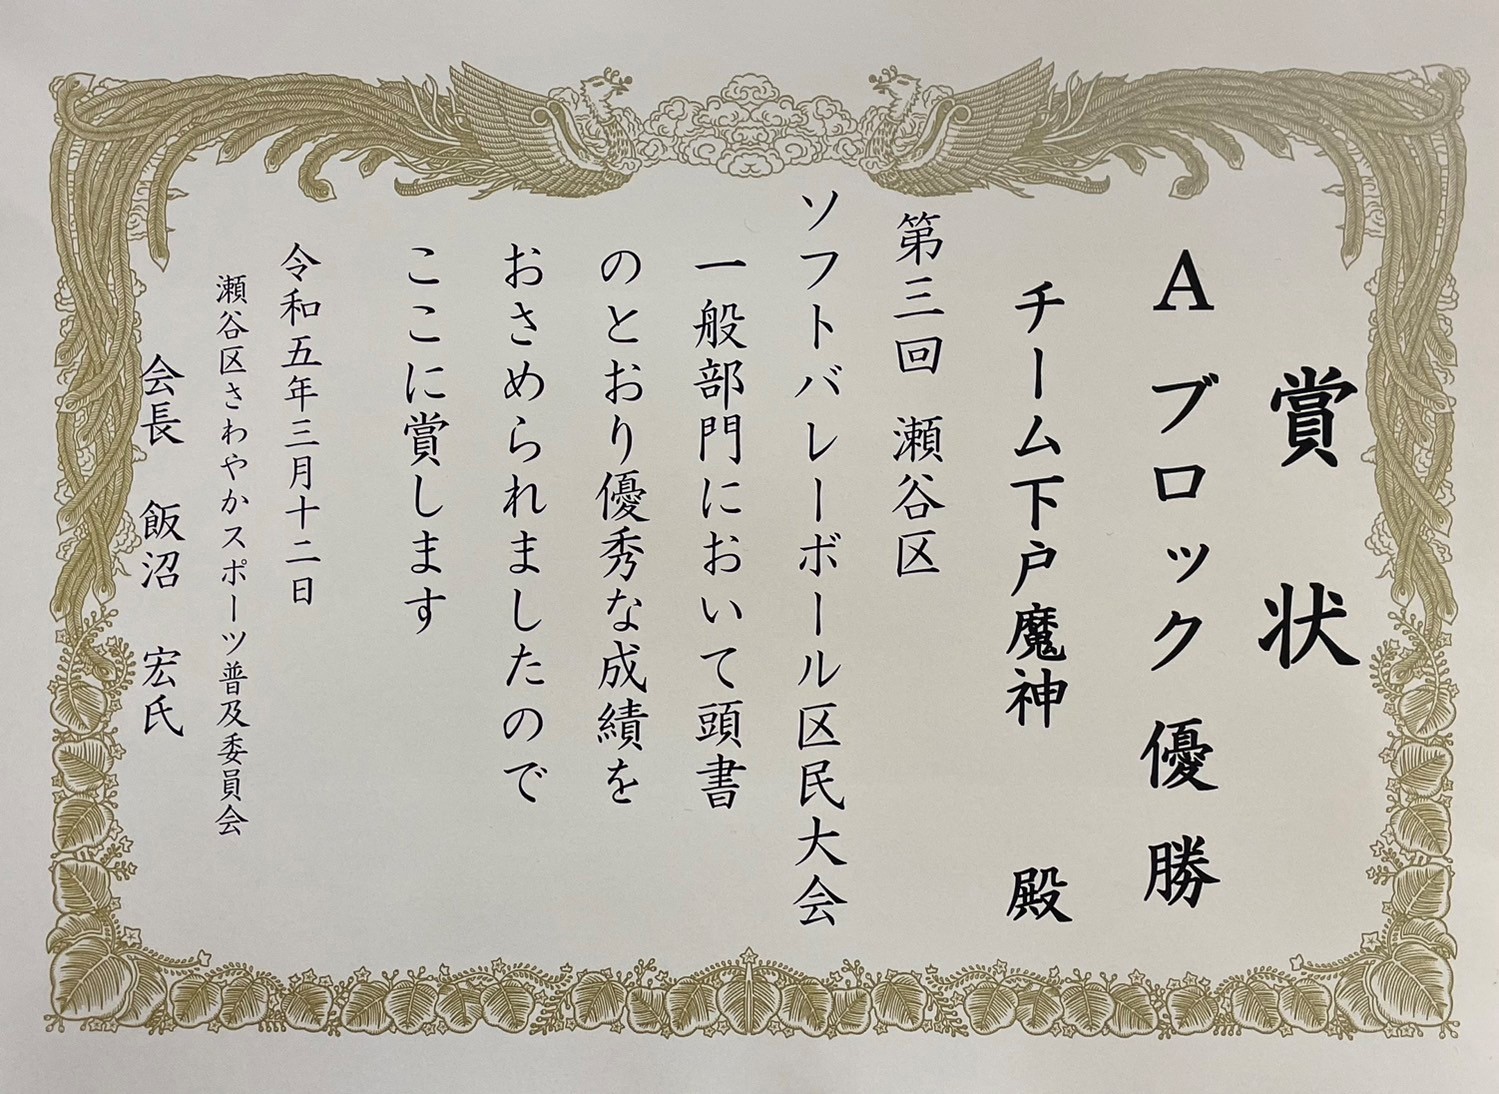 賞状
Aブロック優勝
チーム下戸魔神 殿
第三回 瀬谷区
ソフトバレーボール区民大会
一般部門において頭書
のとおり優秀な成績を
おさめられましたので
ここに賞します
令和五年三月十二日
瀬谷区さわやかスポーツ普及委員会
会長 飯沼 宏氏